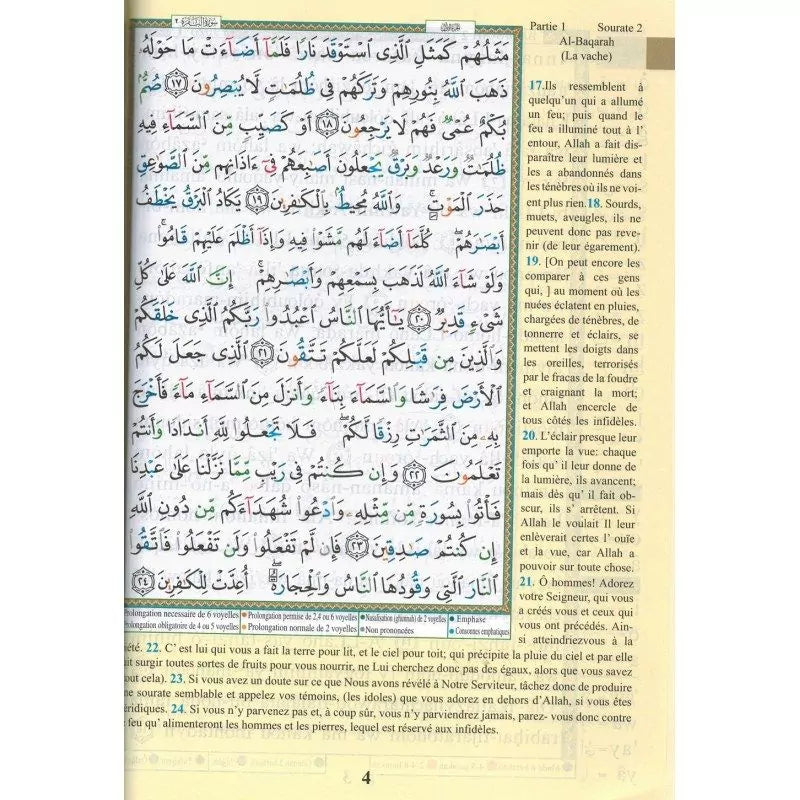 سورة البقرة ٢
الجزء الأول
مَثَلُهُمْ كَمَثَلِ ٱلَّذِى ٱسْتَوْقَدَ نَارًا فَلَمَّآ أَضَآءَتْ مَا حَوْلَهُۥ
ذَهَبَ ٱللَّهُ بِنُورِهِمْ وَتَرَكَهُمْ فِى ظُلُمَٰتٍ لَّا يُبْصِرُونَ ١٧ صُمٌّۢ
بُكْمٌ عُمْىٌ فَهُمْ لَا يَرْجِعُونَ ١٨ أَوْ كَصَيِّبٍ مِّنَ ٱلسَّمَآءِ فِيهِ
ظُلُمَٰتٌ وَرَعْدٌ وَبَرْقٌ يَجْعَلُونَ أَصَٰبِعَهُمْ فِىٓ ءَاذَانِهِم مِّنَ ٱلصَّوَٰعِقِ
حَذَرَ ٱلْمَوْتِ ۚ وَٱللَّهُ مُحِيطٌۢ بِٱلْكَٰفِرِينَ ١٩ يَكَادُ ٱلْبَرْقُ يَخْطَفُ
أَبْصَٰرَهُمْ ۖ كُلَّمَآ أَضَآءَ لَهُم مَّشَوْا۟ فِيهِ وَإِذَآ أَظْلَمَ عَلَيْهِمْ قَامُوا۟ ۚ
وَلَوْ شَآءَ ٱللَّهُ لَذَهَبَ بِسَمْعِهِمْ وَأَبْصَٰرِهِمْ ۚ إِنَّ ٱللَّهَ عَلَىٰ كُلِّ
شَىْءٍ قَدِيرٌ ٢٠ يَٰٓأَيُّهَا ٱلنَّاسُ ٱعْبُدُوا۟ رَبَّكُمُ ٱلَّذِى خَلَقَكُمْ
وَٱلَّذِينَ مِن قَبْلِكُمْ لَعَلَّكُمْ تَتَّقُونَ ٢١ ٱلَّذِى جَعَلَ لَكُمُ
ٱلْأَرْضَ فِرَٰشًا وَٱلسَّمَآءَ بِنَآءً وَأَنزَلَ مِنَ ٱلسَّمَآءِ مَآءً فَأَخْرَجَ
بِهِۦ مِنَ ٱلثَّمَرَٰتِ رِزْقًا لَّكُمْ ۖ فَلَا تَجْعَلُوا۟ لِلَّهِ أَندَادًا وَأَنتُمْ
تَعْلَمُونَ ٢٢ وَإِن كُنتُمْ فِى رَيْبٍ مِّمَّا نَزَّلْنَا عَلَىٰ عَبْدِنَا
فَأْتُوا۟ بِسُورَةٍ مِّن مِّثْلِهِۦ وَٱدْعُوا۟ شُهَدَآءَكُم مِّن دُونِ ٱللَّهِ
إِن كُنتُمْ صَٰدِقِينَ ٢٣ فَإِن لَّمْ تَفْعَلُوا۟ وَلَن تَفْعَلُوا۟ فَٱتَّقُوا۟
ٱلنَّارَ ٱلَّتِى وَقُودُهَا ٱلنَّاسُ وَٱلْحِجَارَةُ ۖ أُعِدَّتْ لِلْكَٰفِرِينَ ٢٤
Prolongation necessaire de 6 voyelles Prolongation permise de 2,4 ou 6 voyelles Nasalisation (ghunnah) de 2 voyelles Emphase
Prolongation obligatoire de 4 ou 5 voyelles Prolongation normale de 2 voyelles Non prononcées Consonnes emphatiques
Partie 1 Sourate 2
Al-Baqarah
(La vache)
17.Ils ressemblent à
quelqu'un qui a allumé
un feu; puis quand le
feu a illuminé tout à l'
entour, Allah a fait dis-
paraître leur lumière et
les a abandonnés dans
les ténèbres où ils ne voi-
ent plus rien.18. Sourds,
muets, aveugles, ils ne
peuvent donc pas reve-
nir (de leur égarement).
19. [On peut encore les
comparer à ces gens
qui, ] au moment où les
nuées éclatent en pluies,
chargées de ténèbres, de
tonnerre et éclairs, se
mettent les doigts dans
les oreilles, terrorisés
par le fracas de la foudre
et craignant la mort;
et Allah encercle de
tous côtés les infidèles.
20. L'éclair presque leur
emporte la vue: chaque
fois qu' il leur donne de
la lumière, ils avancent;
mais dès qu' il fait ob-
scur, ils s' arrêtent. Si
Allah le voulait Il leur
enlèverait certes l' ouïe
et la vue, car Allah a
pouvoir sur toute chose.
21. Ô hommes! Adorez
votre Seigneur, qui vous
a créés vous et ceux qui
vous ont précédés. Ain-
si atteindriezvous à la
iété. 22. C' est lui qui vous a fait la terre pour lit, et le ciel pour toit; qui précipite la pluie du ciel et par elle
it surgir toutes sortes de fruits pour vous nourrir, ne Lui cherchez donc pas des égaux, alors que vous savez
out cela). 23. Si vous avez un doute sur ce que Nous avons révélé à Notre Serviteur, tâchez donc de produire
ne sourate semblable et appelez vos témoins, (les idoles) que vous adorez en dehors d'Allah, si vous êtes
éridiques. 24. Si vous n'y parvenez pas et, à coup sûr, vous n'y parviendrez jamais, parez- vous donc contre
feu qu' alimenteront les hommes et les pierres, lequel est réservé aux infidèles.
4